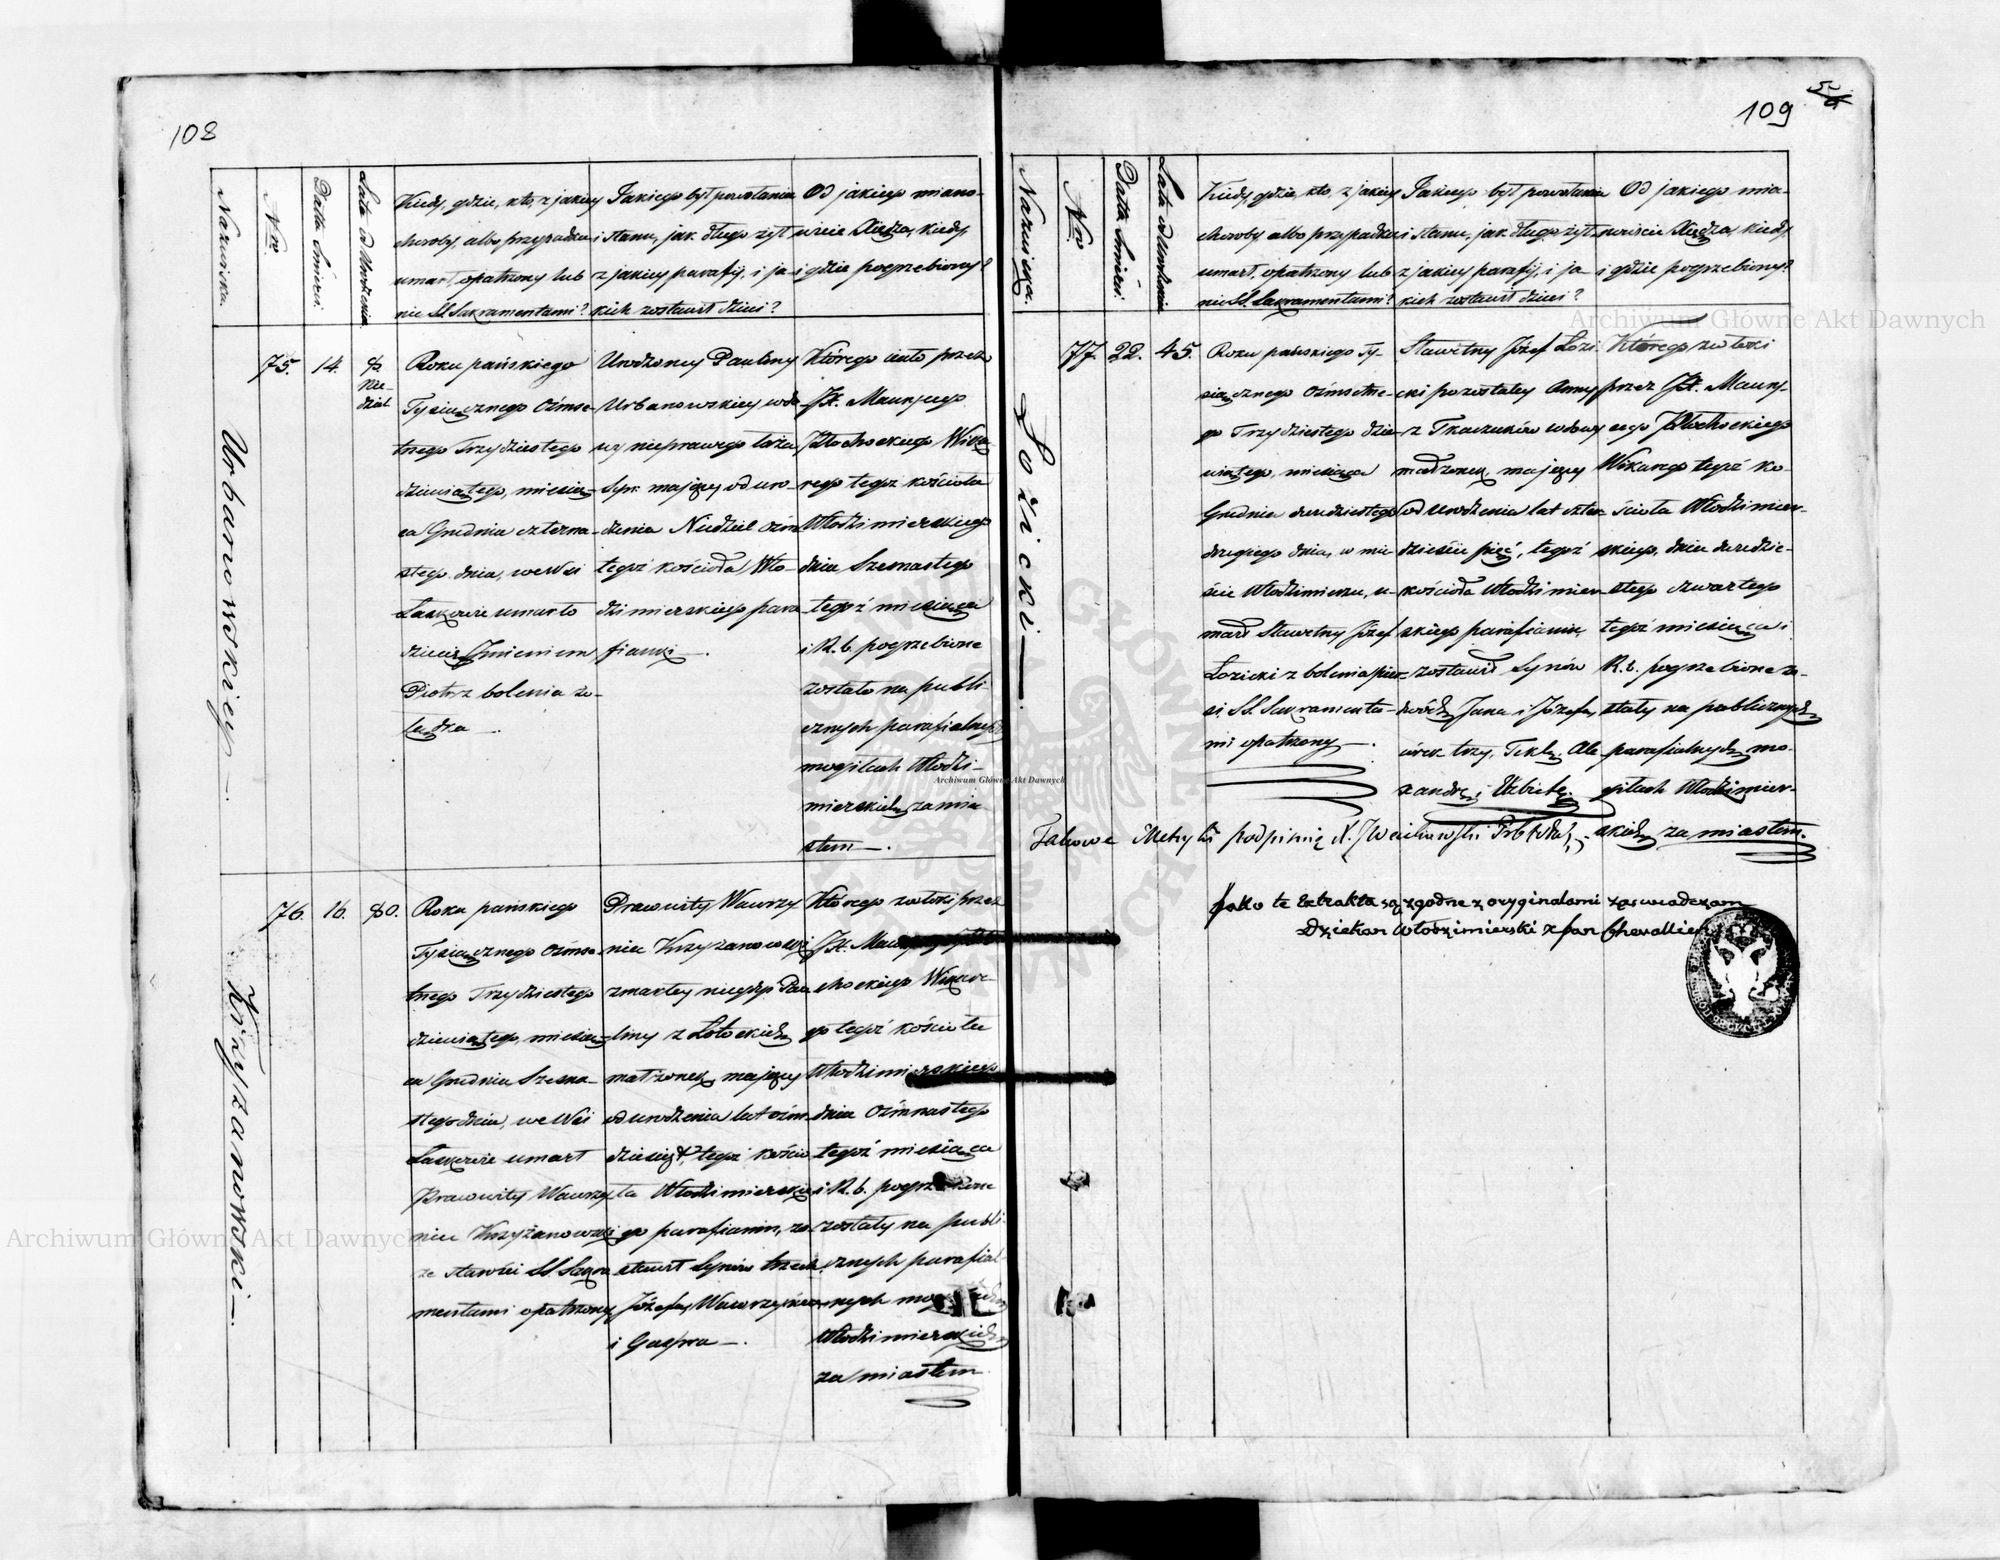 108
Nazwiska.
Nro.
Datta Śmierci.
Lata od Urodzenia.
Kiedy, gdzie, kto, z jakiey
choroby, albo przypadku
umarł, opatrzony lub
nie SS. Sakramentami?
Jakiego był powołania
i stanu, jak długo żył
z jakiey parafij, i ja-
kich zostawił dzieci?
Od jakiego miano-
wicie Xiędza, kiedy
i gdzie pogrzebiony?
Urbanowskiey
75.
14.
8
Nie-
dziel
Roku pańskiego
Tysiącznego Ośmse-
tnego Trzydziestego
dziewiątego, miesią-
ca Grudnia czterna-
stego dnia, we Wsi
Laskowie umarło
dziecię Imieniem
Piotr z bolenia żo-
łądka
Urodzoney Pauliny
Urbanowskiey wdo
wy nieprawego łoża
Syn: mający od uro-
dzenia Niedziel ośm
tegoż kościoła Wło-
dzimierskiego para
fianki
Którego ciało przez
JX. Maurycego
Płochockiego Wika
rego tegoż kościoła
Włodzimierskiego
dnia Szesnastego
tegoż miesiąca
i R. b. pogrzebione
zostało na publi-
cznych parafialnych
mogiłach Włodzi-
mierskich za mia
stem
Krzyżanowski
76.
16.
80.
Roku pańskiego
Tysiącznego Ośmse-
tnego Trzydziestego
dziewiątego, miesią-
ca Grudnia Szesna-
stego dnia, we Wsi
Laskowie umarł
Pracowity Wawrzy
niec Krzyżanowski
ze starości SS. Sakra
mentami opatrzony
Pracowity Wawrzy
niec Krzyżanowski
zmarłey niegdyś Pau
liny z Łotockich
małżonek, mający
od urodzenia lat ośm
dziesiąt, tegoż kościo
ła Włodzimierskie
go parafianin, zo
stawił Synów trzech
Józefa, Wawrzyńca
i Gaspra
Którego zwłoki przez
JX.
chockiego Wikare-
go tegoż kościoła
Włodzimierskiego
dnia Ośmnastego
tegoż miesiąca
i R. b. pogrzebione
zostały na publi
cznych parafial-
nych
Włodzimierskich
za miastem
109
Nazwiska.
Nro.
Datta Śmierci.
Lata od Urodzenia
Kiedy, gdzie, kto, z jakiey
choroby albo przypadku
umarł, opatrzony lub
nie SS. Sakramentami?
Jakiego był powołania
i stanu, jak długo żył
z jakiey parafij, i ja-
kich zostawił dzieci?
Od jakiego mia-
nowicie Xiędza, kiedy
i gdzie pogrzebiony?
Łozicki
77.
22.
45.
Roku pańskiego Ty-
siącznego Ośmsetne-
go Trzydziestego dzie-
wiątego, miesiąca
Grudnia dwudziestego
drugiego dnia, w mie
ście Włodzimierzu, u-
marł Sławetny Józef
Łozicki z bolenia pier-
si, SS. Sakramenta-
mi opatrzony
Sławetny Józef Łozi
cki pozostałey Anny
z Tkaczuków wdowy
małżonek, mający
od urodzenia lat czter-
dzieście pięć, tegoż
kościoła Włodzimier-
skiego parafianin,
zostawił Synów
dwóch, Jana i Józefa,
córek trzy, Teklę, Ale
xandrę, i Elżbietę.
Którego zwłoki
przez JX. Maury-
cego Płochockiego
Wikarego tegoż ko-
ścioła Włodzimier-
skiego, dnia dwudzie-
stego czwartego
tegoż miesiąca i
R. b. pogrzebione zo-
stały na publicznych
parafialnych mo-
giłach Włodzimier-
skich za miastem.
Takowe Metryki podpisuię X.
Jako te Extrakta są zgodne z oryginałami zaświadczam
Dziekan Włodzimierski X Jan Chevallier
Archiwum Główne Akt Dawnych
Archiwum Główne Akt Dawnych
Archiwum Główne Akt Dawnych